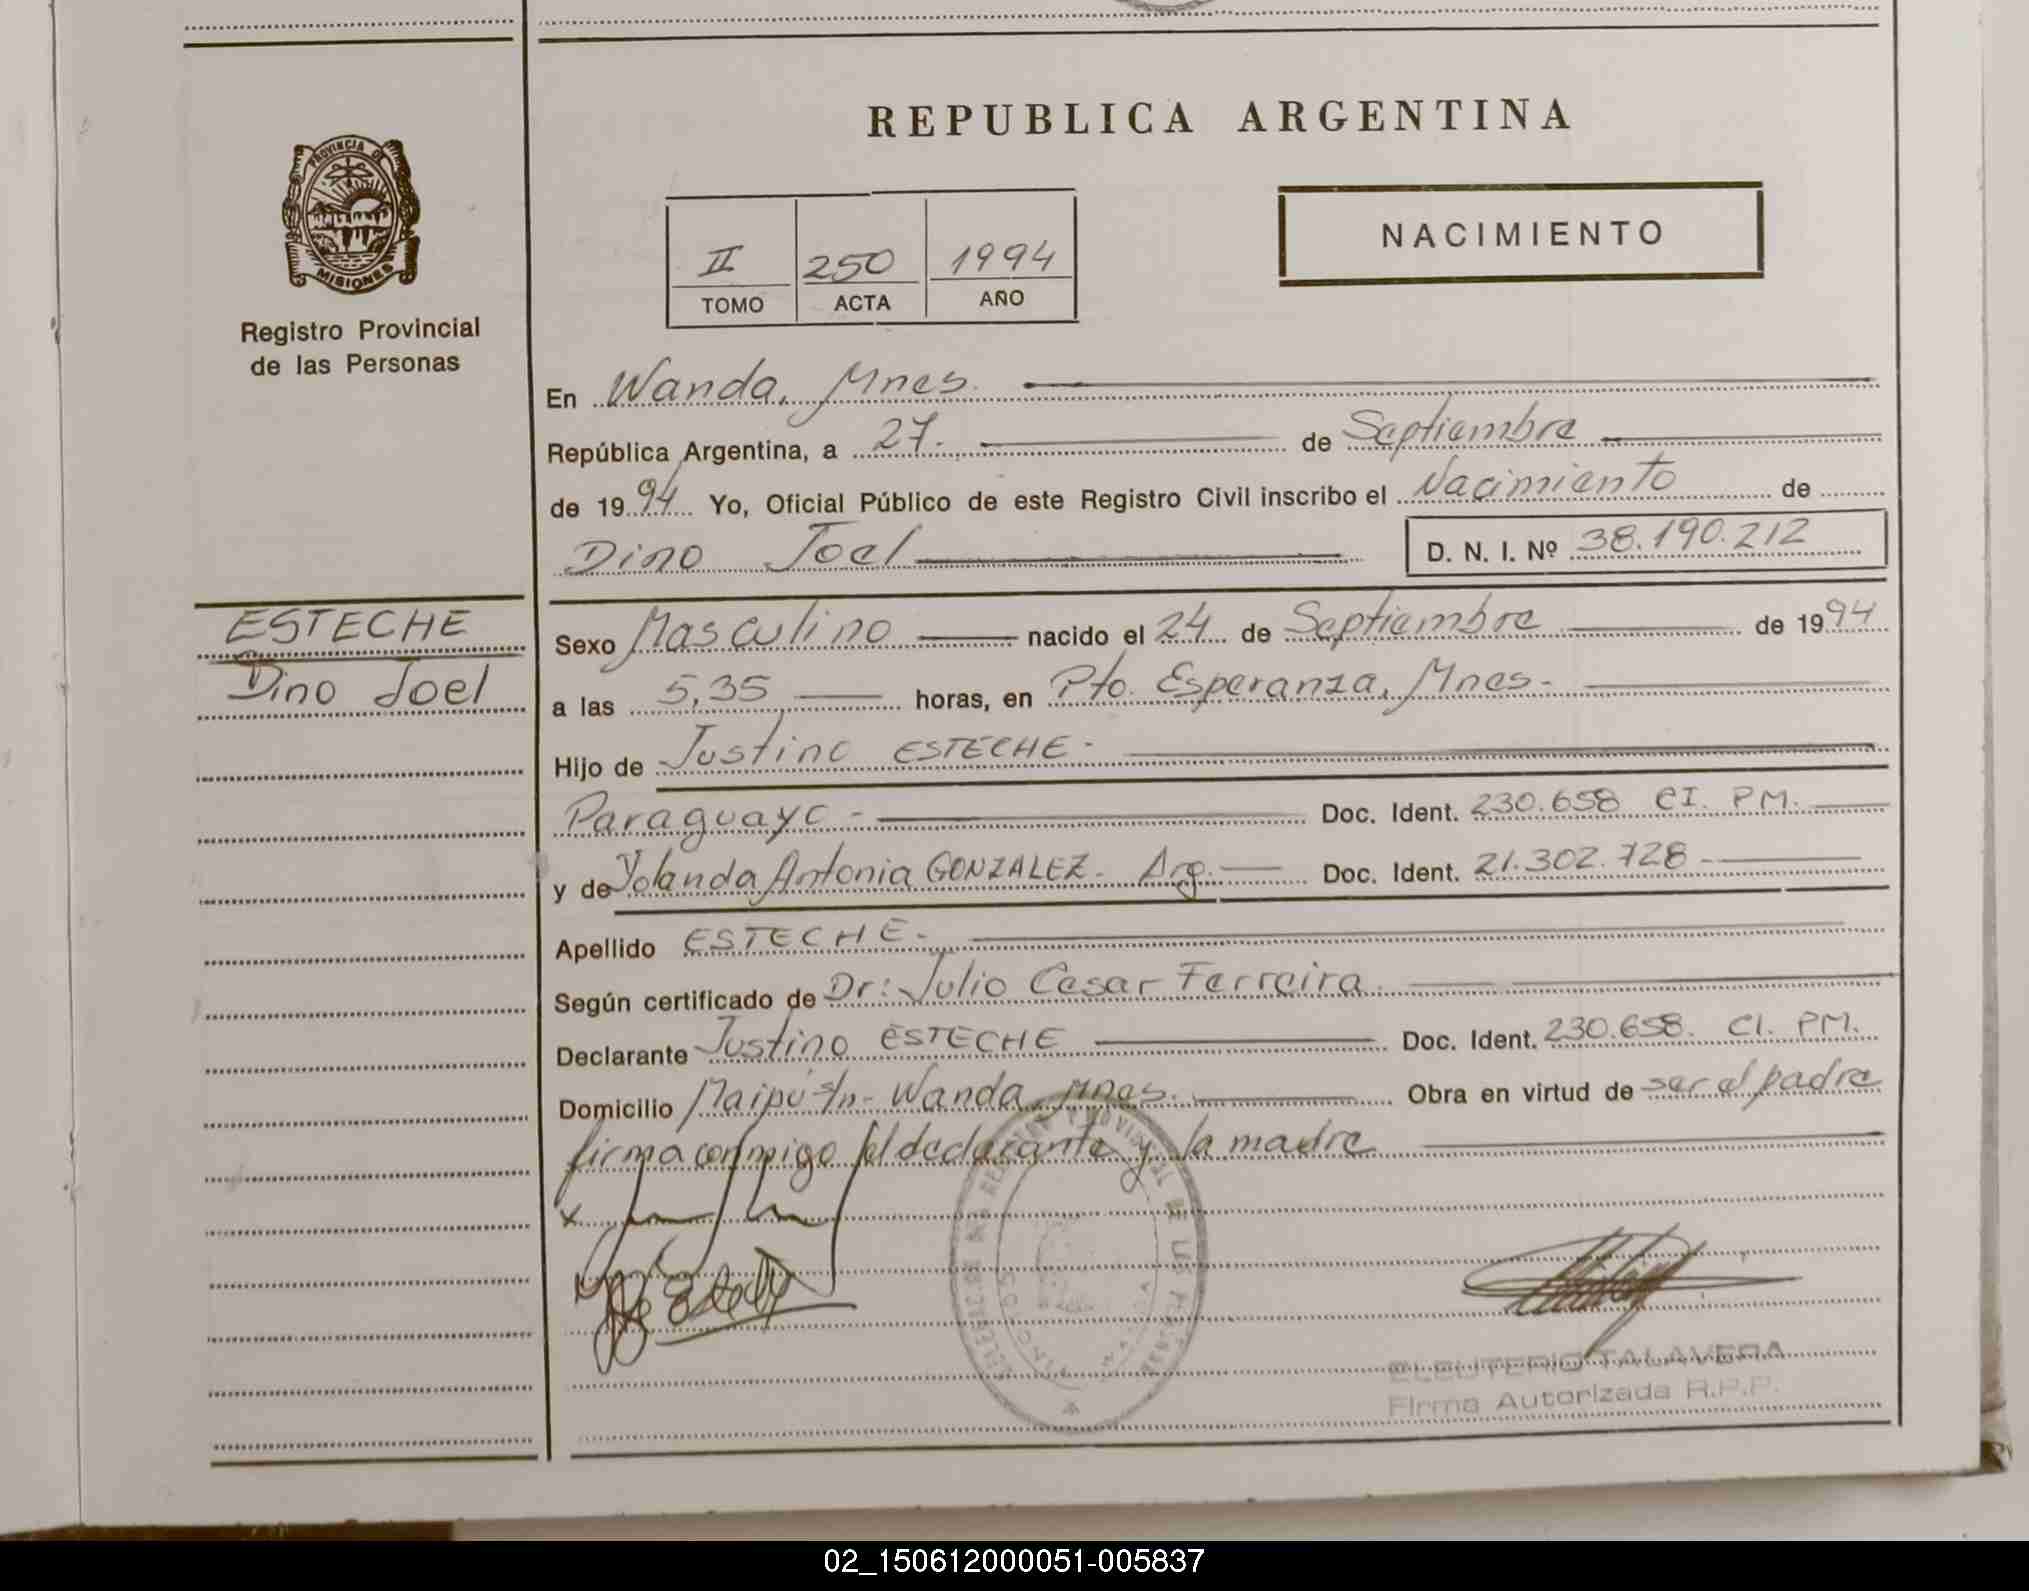 PROVINCIA DE
MISIONES
Registro Provincial
de las Personas
ESTECHE
Dino Joel
REPUBLICA ARGENTINA
II 250 1994
TOMO ACTA AÑO
NACIMIENTO
En Wanda, Mnes.
República Argentina, a 27. de Septiembre
de 1994 Yo, Oficial Público de este Registro Civil inscribo el Nacimiento de
Dino Joel D. N. I. Nº 38.190.212
Sexo Masculino nacido el 24 de Septiembre de 1994
a las 5,35 horas, en Pto. Esperanza, Mnes.
Hijo de Justino ESTECHE-
Paraguayo - Doc. Ident. 230.658 CI. PM.
y de Yolanda Antonia GONZALEZ- Arg. Doc. Ident. 21.302.728
Apellido ESTECHE-
Según certificado de Dr: Julio Cesar Ferreira
Declarante Justino ESTECHE Doc. Ident. 230.658. CI. PM.
Domicilio Maipú s/n- Wanda, Mnes. Obra en virtud de ser el padre
firma conmigo el declarante y la madre
x
ELEUTERIO TALAVERA
Firma Autorizada R.P.P.
02_150612000051-005837